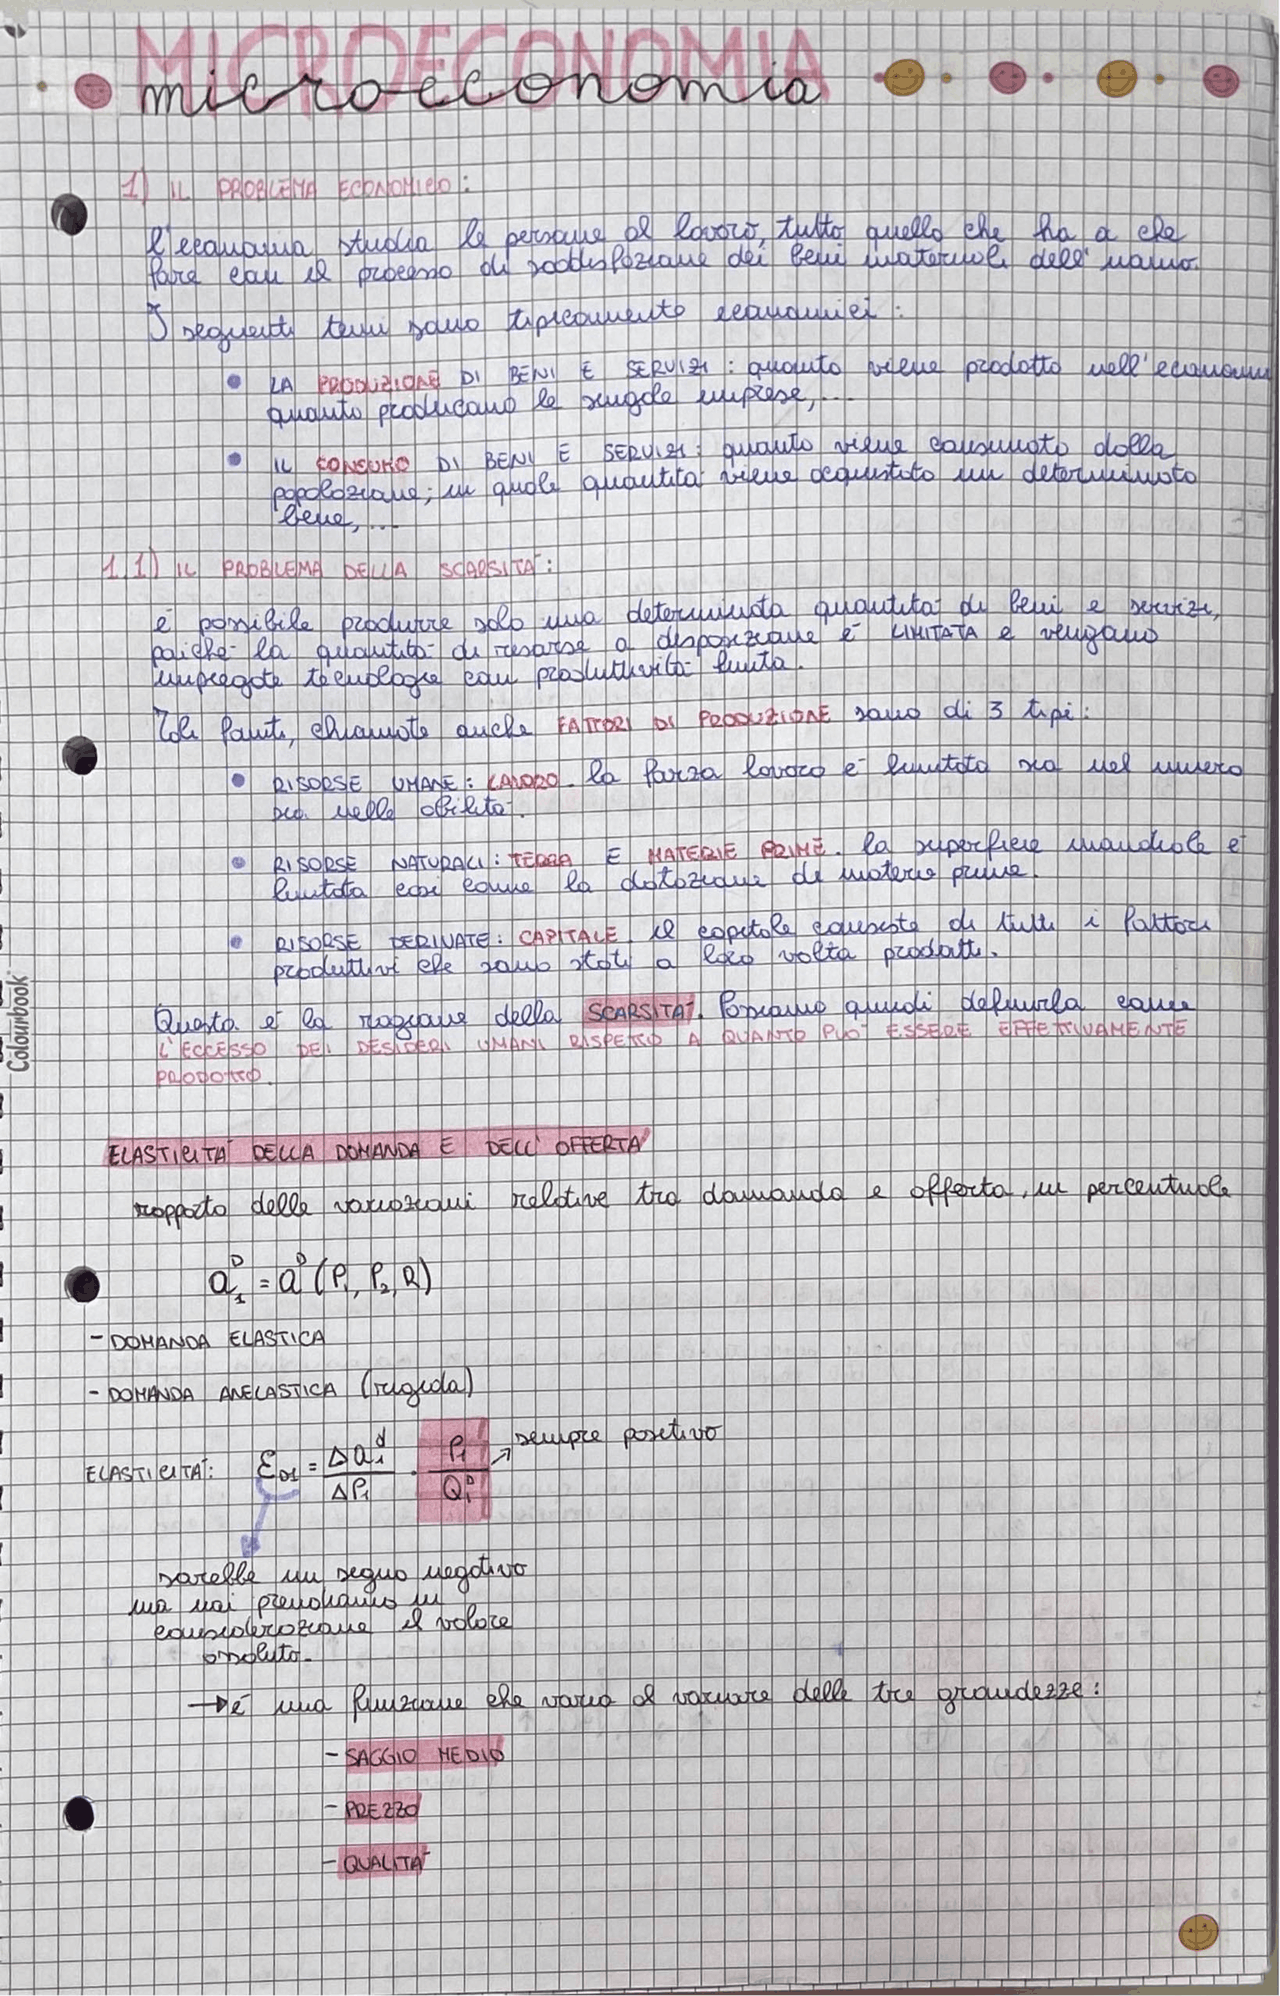 MICROECONOMIA
microeconomia
1) IL PROBLEMA ECONOMICO:
l'economia studia le persone al lavoro, tutto quello che ha a che
fare con il processo di soddisfazione dei beni materiali dell'uomo.
I seguenti temi sono tipicamente economici:
• LA PRODUZIONE DI BENI E SERVIZI: quanto viene prodotto nell'economia
quanto producano le singole imprese,...
• IL CONSUMO DI BENI E SERVIZI: quanto viene consumato dalla
popolazione; in quale quantità viene acquistato un determinato
bene,...
1.1) IL PROBLEMA DELLA SCARSITÀ:
è possibile produrre solo una determinata quantità di beni e servizi,
poiché la quantità di risorse a disposizione è LIMITATA e vengano
impiegate tecnologie con produttività finita.
Tali fonti, chiamate anche FATTORI DI PRODUZIONE sono di 3 tipi:
• RISORSE UMANE: LAVORO. la forza lavoro è limitata sia nel numero
sia nelle abilità.
• RISORSE NATURALI: TERRA E MATERIE PRIME. la superficie mondiale è
limitata così come la dotazione di materie prime.
• RISORSE DERIVATE: CAPITALE. il capitale consiste di tutti i fattori
produttivi che sono stati a loro volta prodotti.
Questa è la ragione della SCARSITÀ. Possiamo quindi definirla come
L'ECCESSO DEI DESIDERI UMANI RISPETTO A QUANTO PUÒ ESSERE EFFETTIVAMENTE
PRODOTTO.
Colourbook
ELASTICITÀ DELLA DOMANDA E DELL'OFFERTA
rapporto delle variazioni relative tra domanda e offerta, in percentuale
Q₁ᴰ = Qᴰ (P₁, P₂, R)
- DOMANDA ELASTICA
- DOMANDA ANELASTICA (rigida)
ELASTICITÀ: ε_D1 = ΔQ₁ᵈ / ΔP₁ · P₁ / Q₁ᴰ → sempre positivo
sarebbe un segno negativo
ma noi prendiamo in
considerazione il valore
assoluto.
→ è una funzione che varia al variare delle tre grandezze:
- SAGGIO MEDIO
- PREZZO
- QUALITÀ